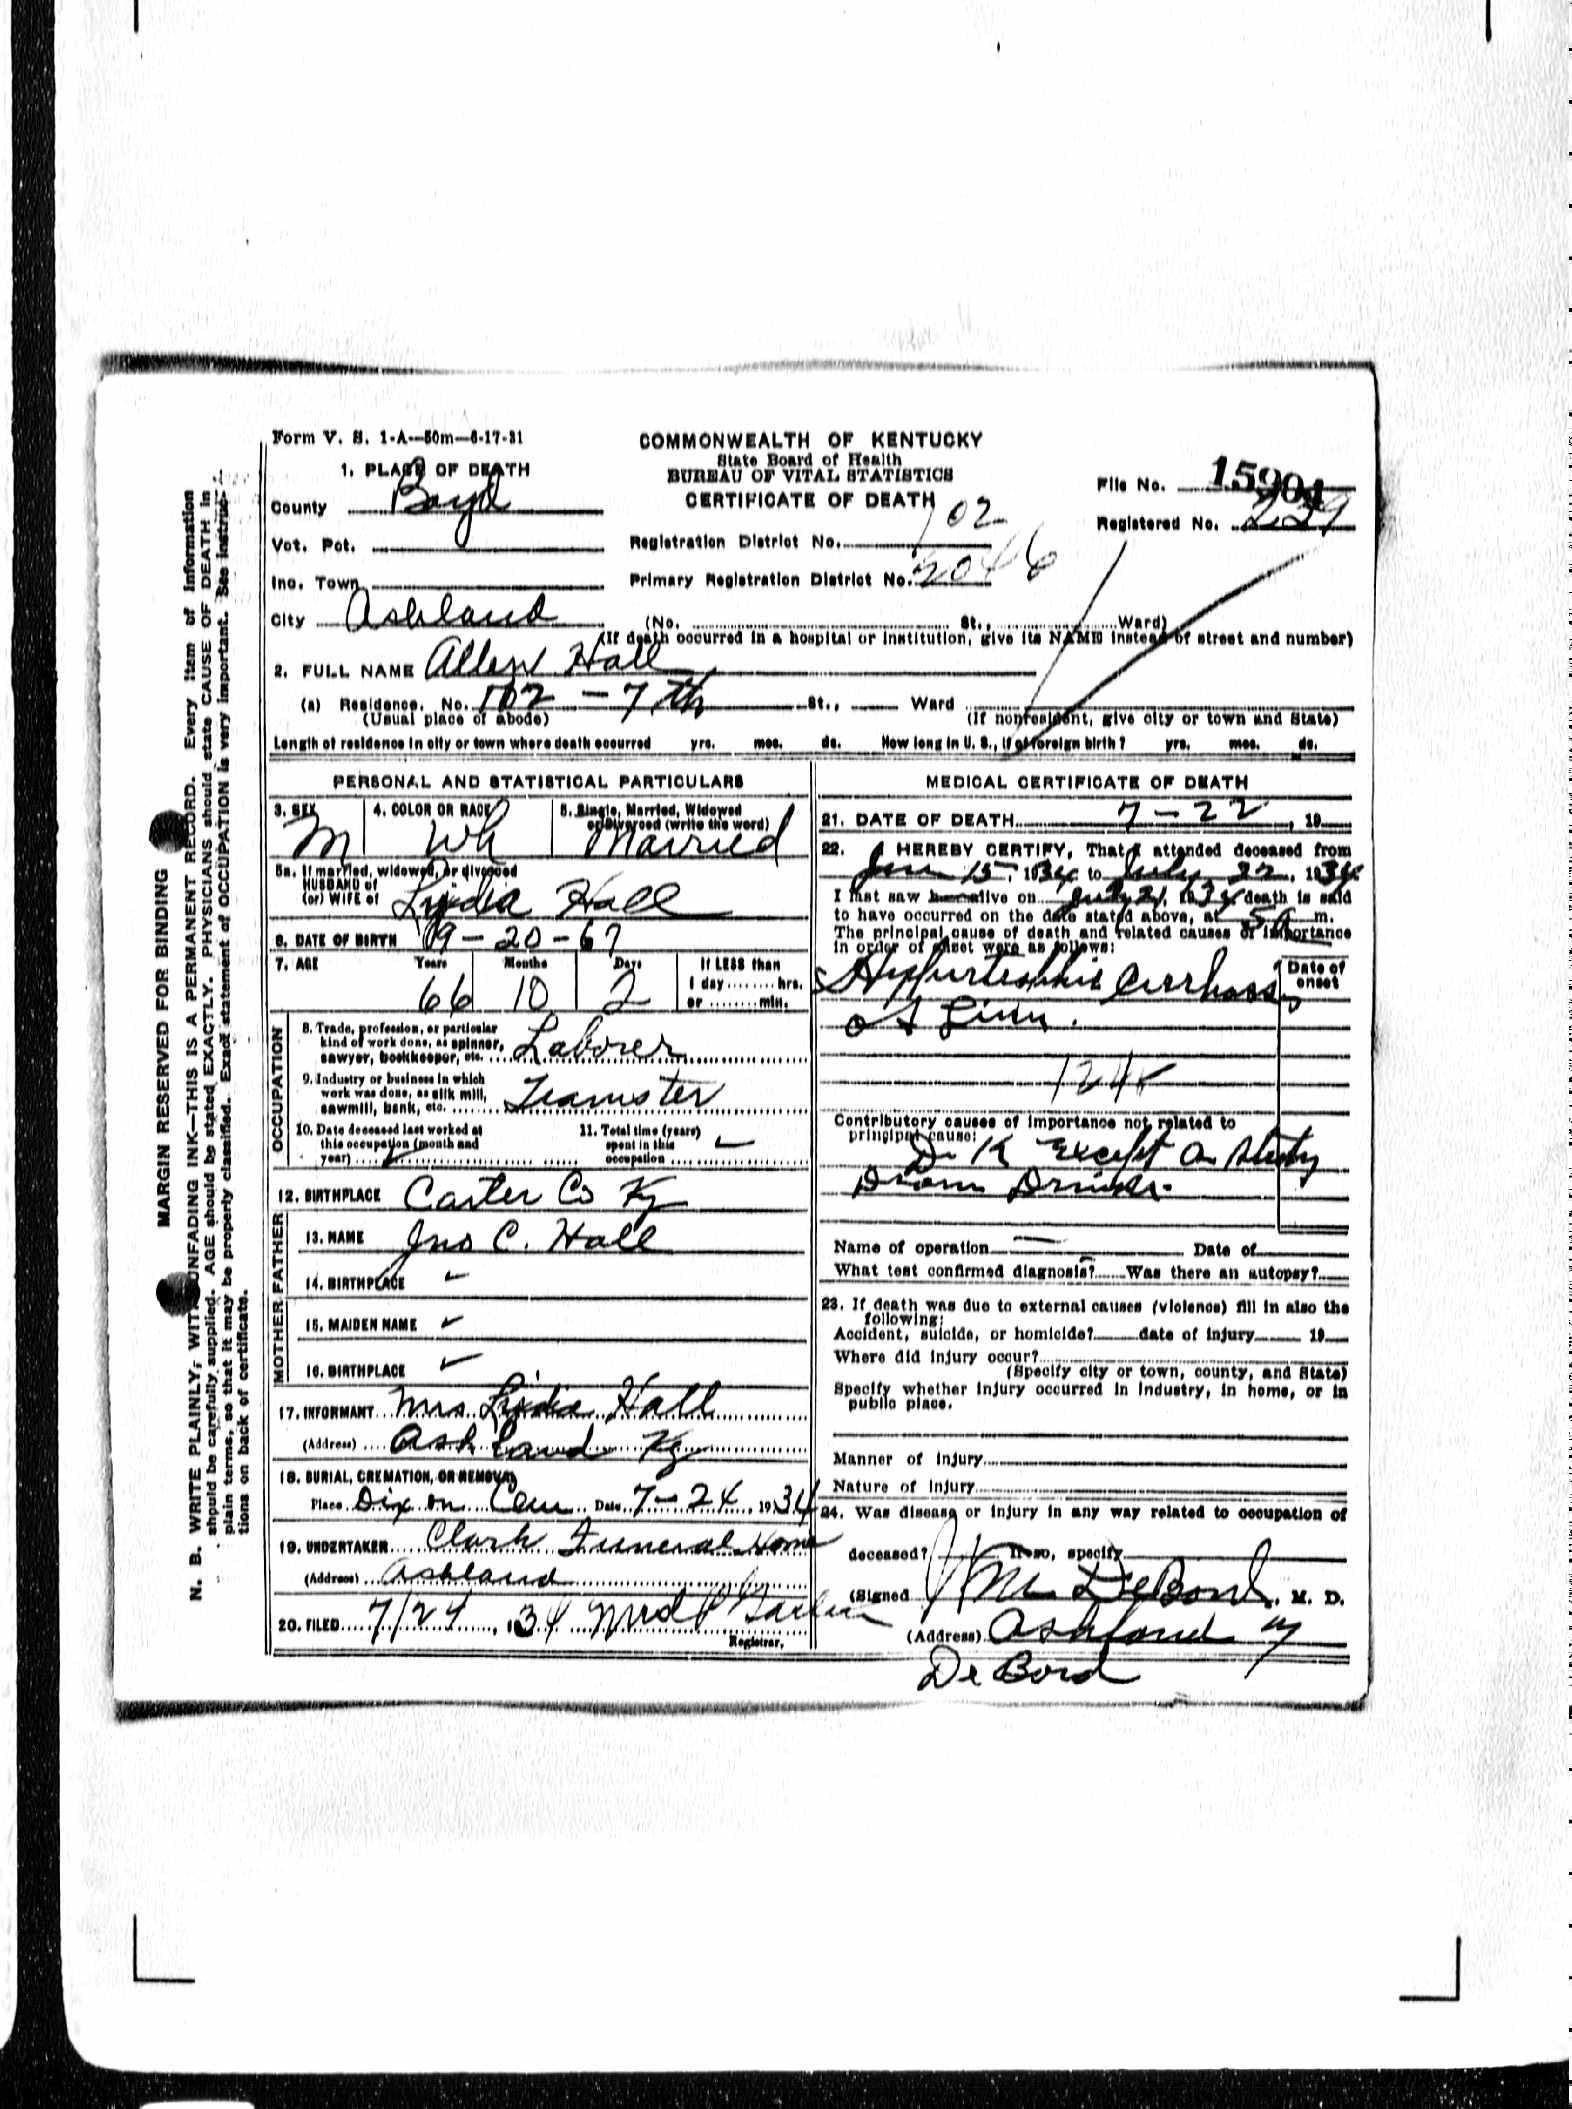 Form V. S. 1-A—50m—6-17-31
COMMONWEALTH OF KENTUCKY
State Board of Health
BUREAU OF VITAL STATISTICS
CERTIFICATE OF DEATH
File No. 15904
Registered No. 229
1. PLACE OF DEATH
County Boyd
Vot. Pct.
Registration District No. 102
Inc. Town
Primary Registration District No. 3046
City Ashland (No. St., Ward)
(If death occurred in a hospital or institution, give its NAME instead of street and number)
2. FULL NAME Allen Hall
(a) Residence. No. 102 - 7th St., Ward
(Usual place of abode) (If nonresident, give city or town and State)
Length of residence in city or town where death occurred yrs. mos. ds. How long in U. S., if of foreign birth? yrs. mos. ds.
PERSONAL AND STATISTICAL PARTICULARS
3. SEX M
4. COLOR OR RACE Wh
5. Single, Married, Widowed
or Divorced (write the word)
Married
5a. If married, widowed, or divorced
HUSBAND of
(or) WIFE of Lydia Hall
6. DATE OF BIRTH 9-20-67
7. AGE Years Months Days If LESS than
1 day hrs.
or min.
66 10 2
OCCUPATION
8. Trade, profession, or particular
kind of work done, as spinner,
sawyer, bookkeeper, etc. Laborer
9. Industry or business in which
work was done, as silk mill,
sawmill, bank, etc. Teamster
10. Date deceased last worked at
this occupation (month and
year)
11. Total time (years)
spent in this
occupation
12. BIRTHPLACE Carter Co Ky
FATHER
13. NAME Jno C. Hall
14. BIRTHPLACE
MOTHER
15. MAIDEN NAME
16. BIRTHPLACE
17. INFORMANT Mrs Lydia Hall
(Address) Ashland Ky
18. BURIAL, CREMATION, OR REMOVAL
Place Dixon Cem Date 7-24 1934
19. UNDERTAKER Clark Funeral Home
(Address) Ashland
20. FILED 7/24, 1934
Registrar.
MEDICAL CERTIFICATE OF DEATH
21. DATE OF DEATH 7-22, 19
22. I HEREBY CERTIFY, That I attended deceased from
Jun 15, 1934 to July 22, 1934
I last saw h alive on July 21, 1934 death is said
to have occurred on the date stated above, at 5 A m.
The principal cause of death and related causes of importance
in order of onset were as follows:
Date of
onset
Cirrhosis
of Liver.
Contributory causes of importance not related to
principal cause:
Dr K Except a steady
Dram Drinker.
Name of operation Date of
What test confirmed diagnosis? Was there an autopsy?
23. If death was due to external causes (violence) fill in also the
following:
Accident, suicide, or homicide? date of injury 19
Where did injury occur?
(Specify city or town, county, and State)
Specify whether injury occurred in industry, in home, or in
public place.
Manner of injury
Nature of injury
24. Was disease or injury in any way related to occupation of
deceased? If so, specify
(Signed J M DeBord, M. D.
(Address) Ashland Ky
DeBord
MARGIN RESERVED FOR BINDING
N. B. WRITE PLAINLY, WITH UNFADING INK—THIS IS A PERMANENT RECORD. Every item of information
should be carefully supplied. AGE should be stated EXACTLY. PHYSICIANS should state CAUSE OF DEATH in
plain terms, so that it may be properly classified. Exact statement of OCCUPATION is very important. See instruc-
tions on back of certificate.